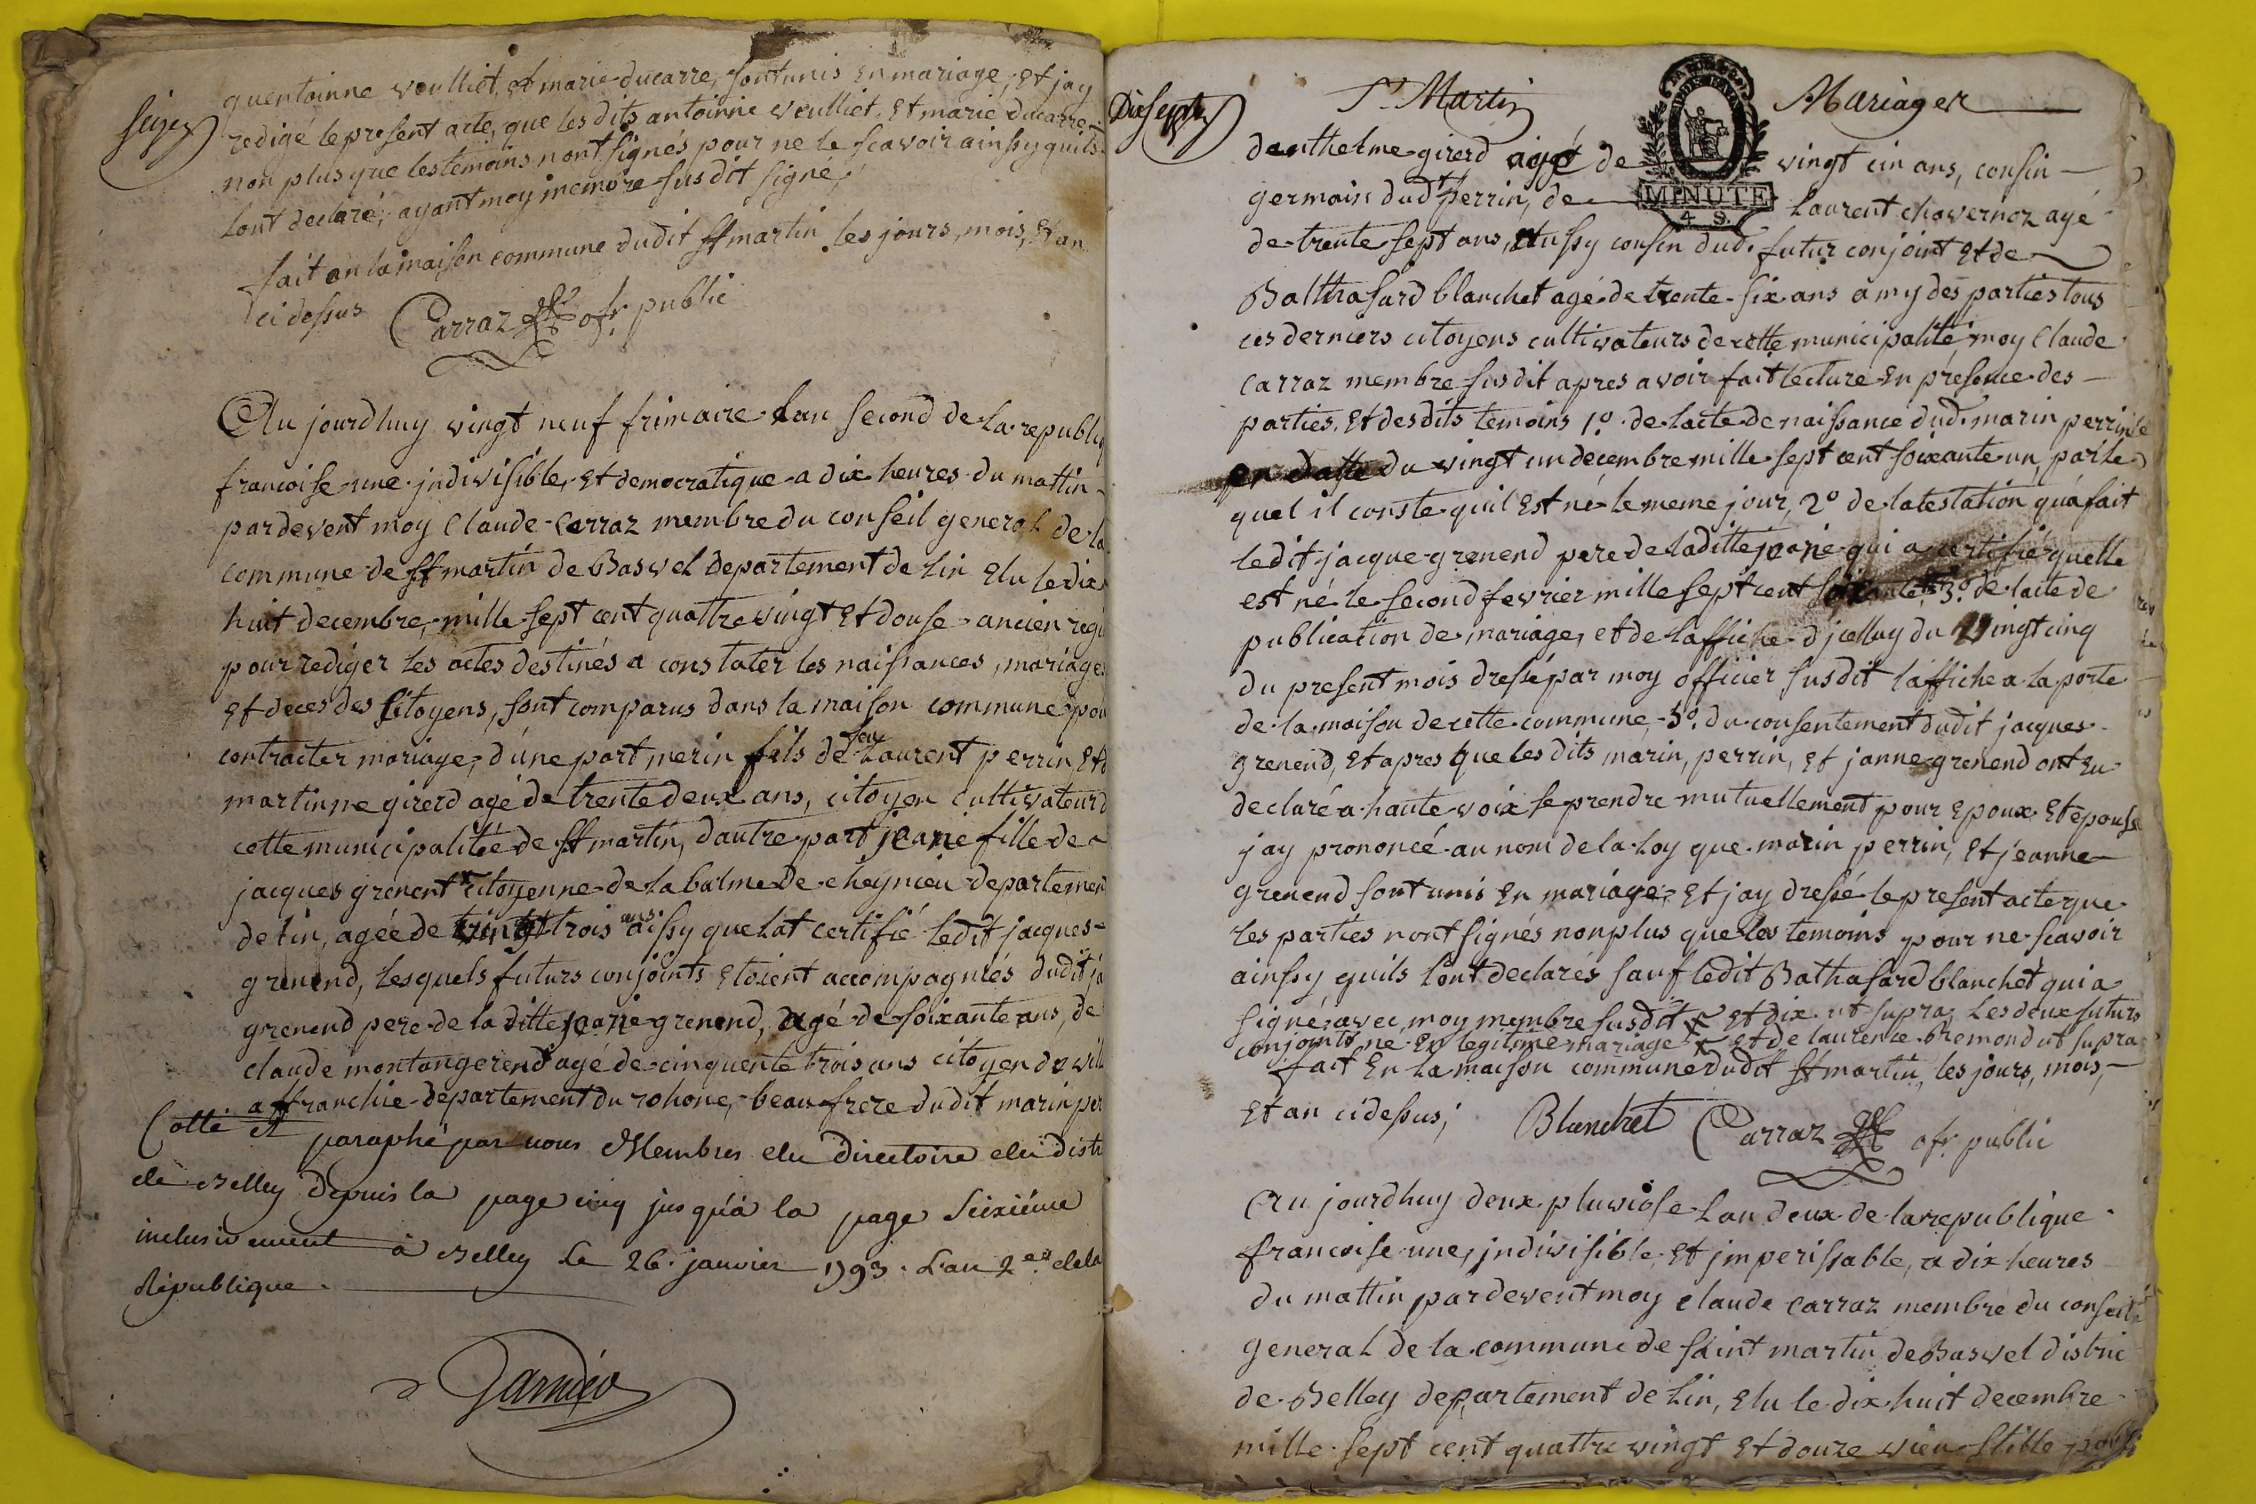 Seize
quentoinne veulliet, et marie ducarre, sont unis en mariage, et jay
redigé le present acte, que les dits antoinne veulliet, et marie ducarre
non plus que les temoins nont signés pour ne le scavoir ainssy quils
lont declaré, ayant moy membre susdit signé,
fait en la maison commune dudit st martin les jours, mois, et an
ci dessus Carraz ofr public
Au jourdhuy vingt neuf frimaire lan second de la republi
francoise une jndivisible, et democratique a dix heures du mattin
pardevent moy Claude Carraz membre du conseil general de la
commune de st martin de Bavel departement de lin Elu le dix
huit decembre, mille sept cent quattre vingt et douse ancien regi
pour rediger les actes destinés a constater les naissances, mariages
et deces des Citoyens, sont comparus dans la maison commune pou
contracter mariage, d'une part merin fils de feu Laurent perrin, et d
martinne girerd agé de trente deux ans, citoyen cultivateur d
cette municipalitée de st martin, dautre part jeane fille de
jacques grenent x citoyenne de la balme de cheynieu departement
de lin, agée de vingt trois ans aissy que lat certifié ledit jacques
grenend, lesquels futurs conjoints etoient accompagniés dudit ja
grenend pere de la ditte jeane grenend, agé de soixante ans, de
claude montangerend agé de cinquente trois ans citoyen de vill
affranchie departement du rohone, beaufrere dudit marin per
Cotté et paraphé par nous Membres du Directoire du distr
de Belley depuis la page cinq jusqu'à la page Seizième
inclusivement à Belley le 26 janvier 1793. L'an 2e de la
République.
Garnier
Dix sept
St Martin Mariages
MINUTE
4 S.
danthelme girerd agé de vingt cin ans, consin
germain dudt perrin, de Laurent chavernoz agé
de trente sept ans, aussy consin dud. futur conjoint et de
Balthasard blanchet agé de trente six ans amy des parties tous
ces derniers citoyens cultivateurs de cette municipalité moy Claude
Carraz membre susdit apres avoir fait lecture en présence des
parties, et desdits temoins 1o de lacte de naissance dud. marin perrin
en datte du vingt un decembre mille sept cent soixante un, par le
quel il conste quil est né le meme jour, 2o de latestation qu'a fait
ledit jacque grenend pere de la ditte jeane qui a certifie quelle
est né le second fevrier mille sept cent soixante 3o de lacte de
publication de mariage, et de laffiche djcelluy du vingt cinq
du present mois dressé par moy officier susdit laffiche a la porte
de la maison de cette commune, 5o. du consentement dudit jacques
grenend, et apres que les dits marin, perrin, et janne grenend ont eu
declaré a haute voix se prendre mutuellement pour epoux et epouse
jay prononcé au nom de la loy que marin perrin, et jeanne
grenend sont unis en mariage, et jay dressé le present acte que
les parties nont signés non plus que les temoins pour ne scavoir
ainssy quils lont declarés sauf ledit Bathasard blanchet qui a
signé avec moy membre susdit x et dix ut supra, Les deux futurs
conjoints ne en legitime mariage x et de laurence bremond ut supra
fait en la maison commune dudit st martin, les jours, mois,
et an ci dessus, Blanchet Carraz ofr public
Au jourdhuy deux pluviose lan deux de la republique
francoise une, jndivisible, et jmperissable, a dix heures
du mattin pardevent moy claude Carraz membre du conseil
general de la commune de saint martin de Bavel distric
de Belley departement de lin, elu le dix huit decembre
mille sept cent quattre vingt et douze vieu stille pour